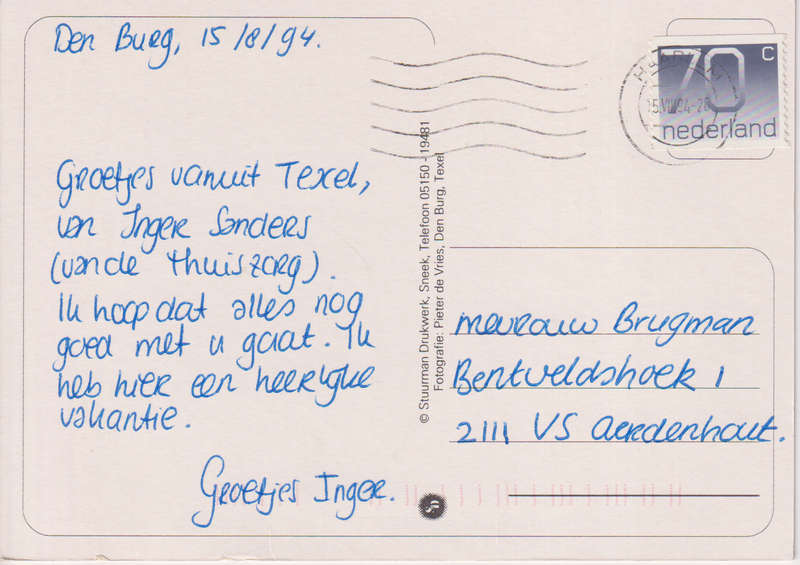 Den Burg, 15/8/94.
Groetjes vanuit Texel,
van Inger Sanders
(van de thuiszorg).
Ik hoop dat alles nog
goed met u gaat. Ik
heb hier een heerlijke
vakantie.
Groetjes Inger.
© Stuurman Drukwerk, Sneek, Telefoon 05150 - 19481
Fotografie: Pieter de Vries, Den Burg, Texel
70 c
nederland
mevrouw Brugman
Bentveldshoek 1
2111 VS Aerdenhout.